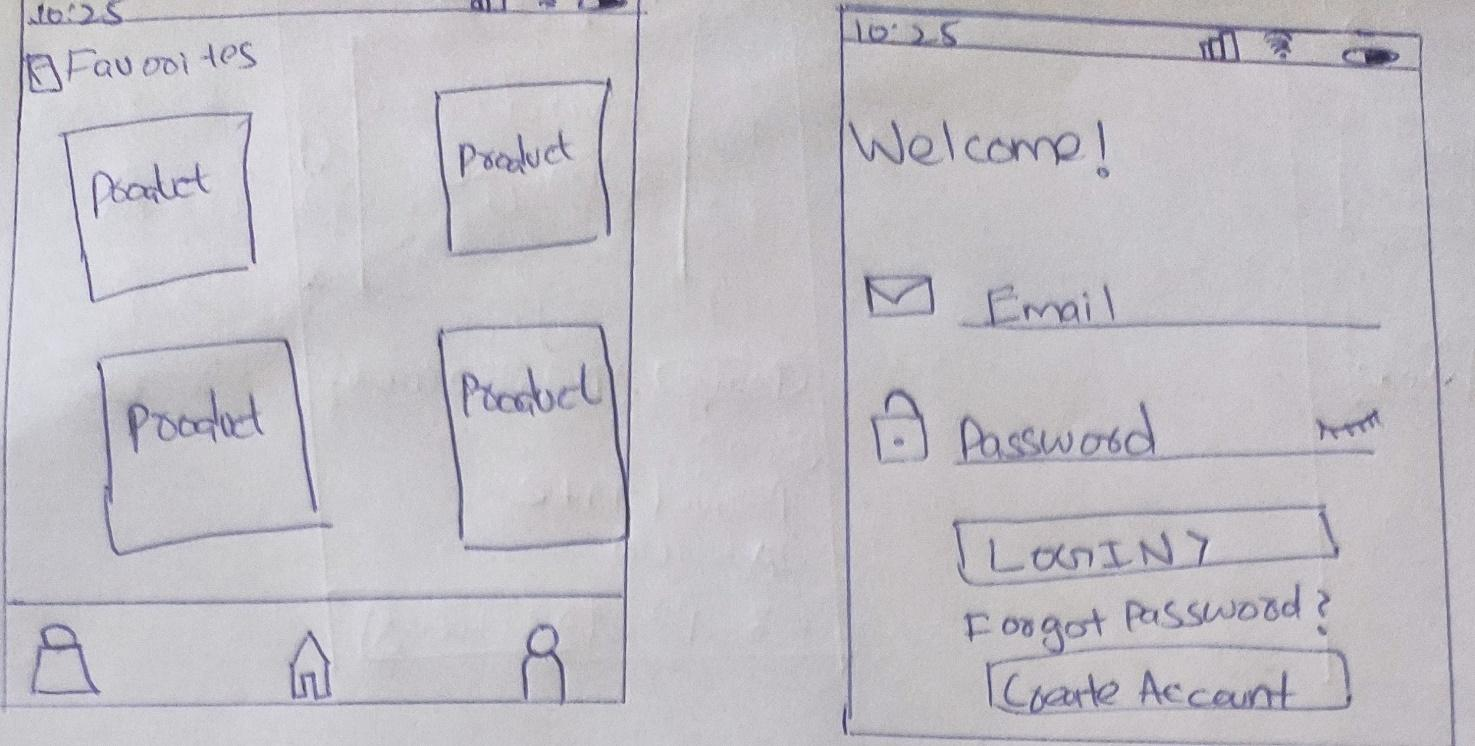 10:25
Favorites
Product
Product
Product
Product
10:25
Welcome!
Email
Password
LOGIN >
Forgot Password?
Create Account